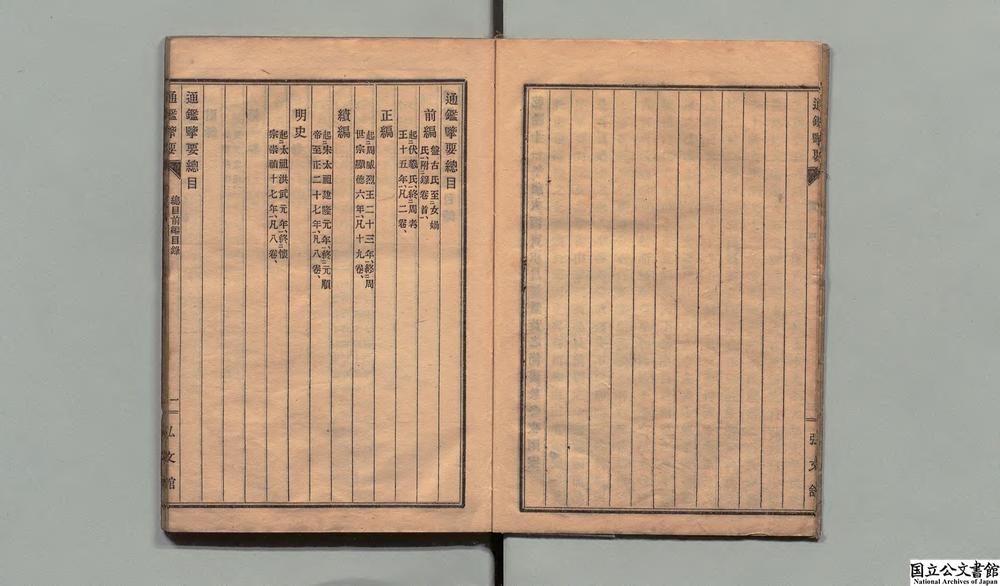 通鑑擥要
弘文館
通鑑擥要總目
前編
盤古氏至女媧
氏、附錄卷首、
起伏羲氏、終周考
王十五年、凡二卷、
正編
起周威烈王二十三年、終周
世宗顯德六年、凡十九卷、
續編
起宋太祖建隆元年、終元順
帝至正二十七年、凡八卷、
明史
起太祖洪武元年、終懷
宗崇禎十七年、凡八卷、
通鑑擥要總目
通鑑擥要
總目前編目錄
一
弘文館
国立公文書館
National Archives of Japan